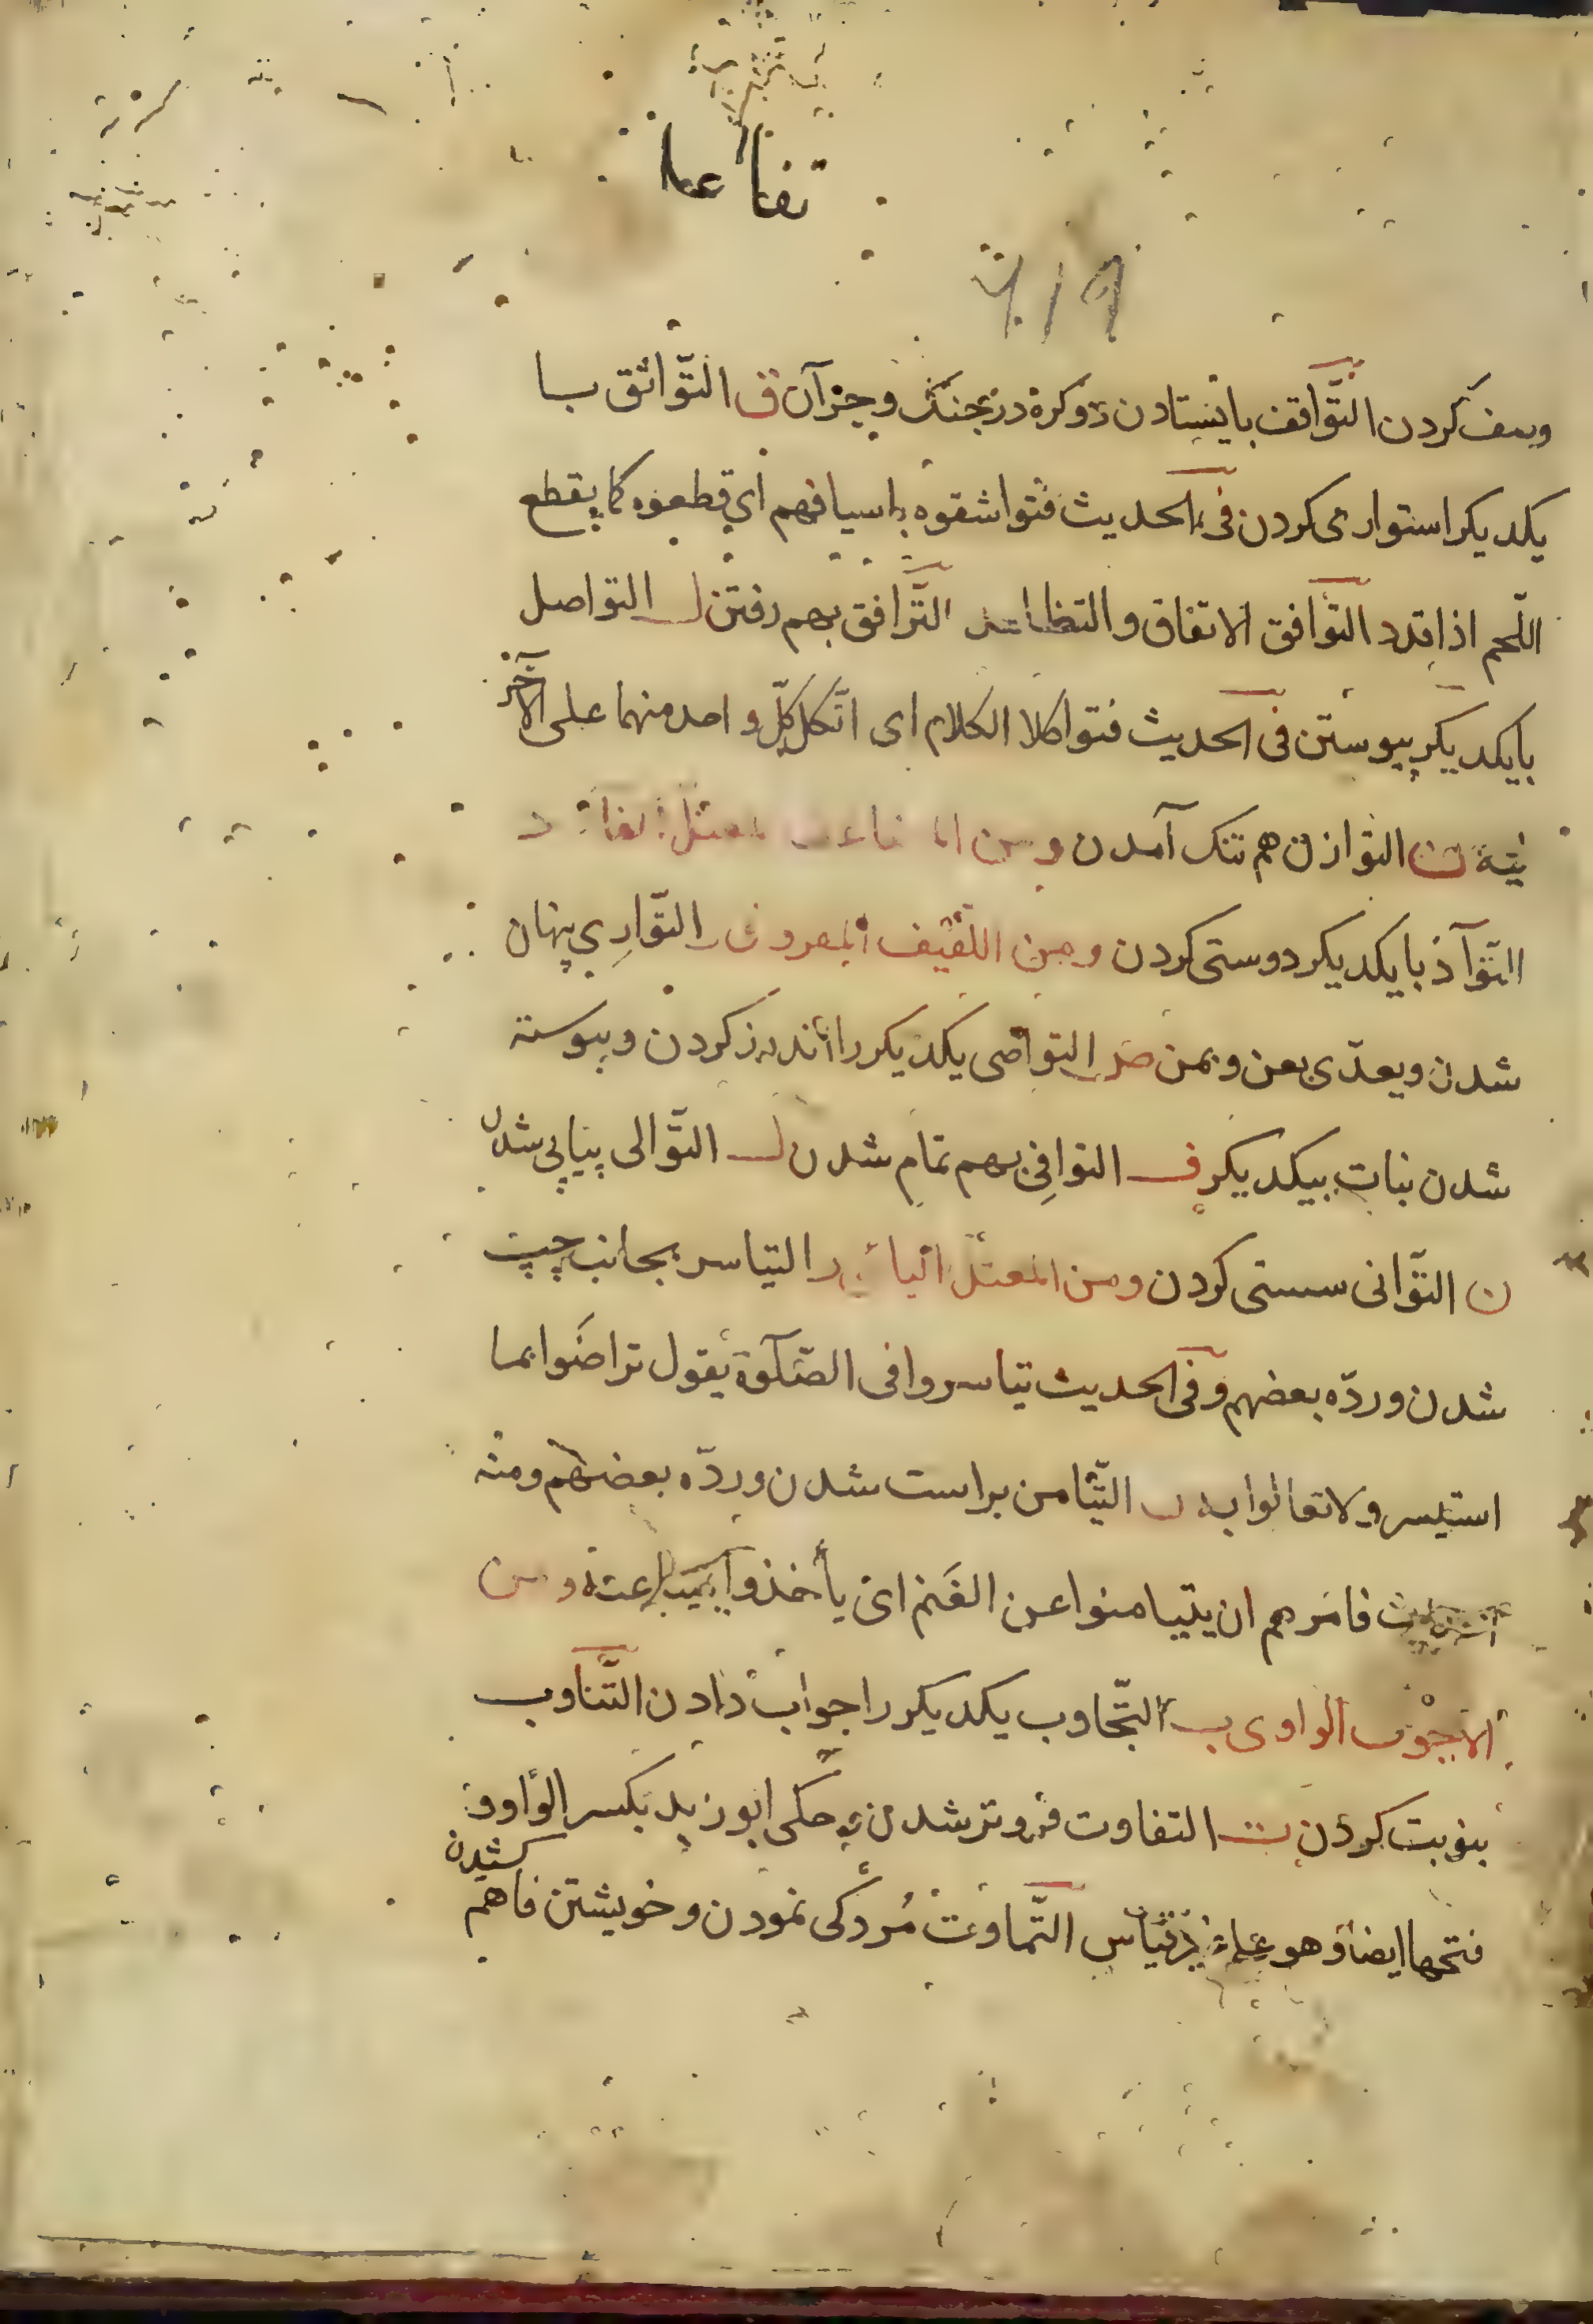 تفاعل
۹۱۹
وصف کردن التّواقف باایستادن دوکرة درجنك وجزآن ق التّواثق با
یکدیکر استواری کردن فی الحدیث فتواشقوه باسیافهم ای قطعوه کما یقطع
اللّحم اذا قدد التّوافق الاتفاق والتظاهر التّرافق بهم رفتن ل التواصل
بایکدیکر پیوستن فی الحدیث فتواکلا الکلام ای اتّکل کلّ واحد منهما علی الآخر
فیه ن التوازن هم تنك آمدن ومن المضاعف المعتل الفاء د
التّوآدّ بایکدیکر دوستی کردن ومن اللّفیف المفروق ر التّواری پنهان
شدن ویعدّی بعن وبمن ص التواصی یکدیکر را اندرز کردن وپیوسته
شدن نبات بیکدیکر ف التوافی بهم تمام شدن ل التّوالی پیاپی شدن
ن التّوانی سستی کردن ومن المعتلّ الیاء ر التیاسر بجانب چپ
شدن وردّه بعضهم وفی الحدیث تیاسروا فی الصّداق یقول تراضَوا بما
استیسر ولا تغالوا به ن التّیامن براست شدن وردّه بعضهم ومنه
الحدیث فامرهم ان یتیامنوا عن الغَنم ای یأخذوا عنه ومن
الاجوف الواوی ب التّجاوب یکدیکر را جواب دادن التّناوب
بنوبت کردن ت التفاوت فروتر شدن وحکی ابو زید بکسر الواو و
فتحها ایضا وهو علی غیر قیاس التّماوت مُردکی نمودن وخویشتن فاهم
کشیدن